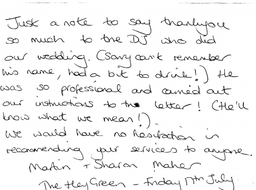 Just a note to say thankyou
so much to the DJ who did
our wedding. (Sorry cant remember
his name, had a bit to drink!) He
was so professional and carried out
our instructions to the letter! (He'll
know what we mean!).
We would have no hesitation in
recommending your services to anyone.
Martin + Sharon Maher
The Hey Green - Friday 17th July